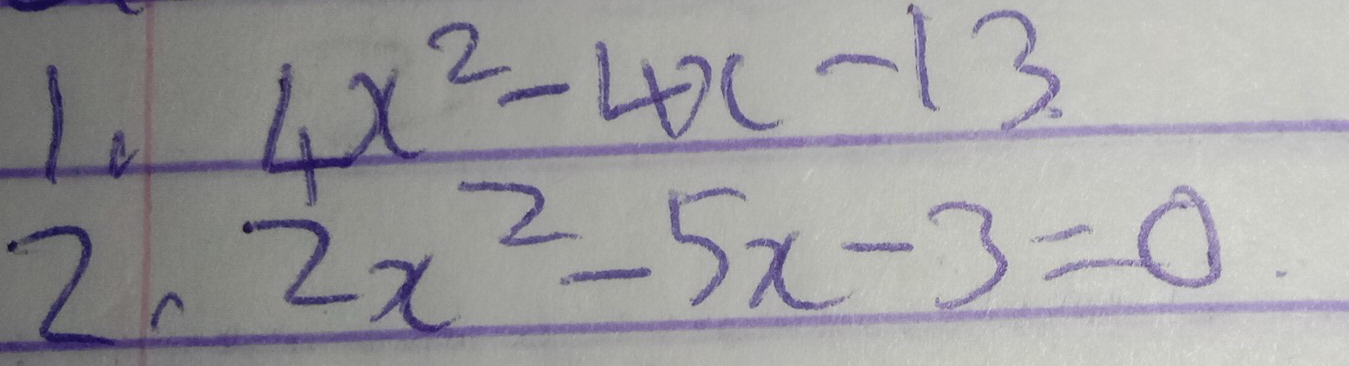 1. 4x² - 4x - 13.
2. 2x² - 5x - 3 = 0.